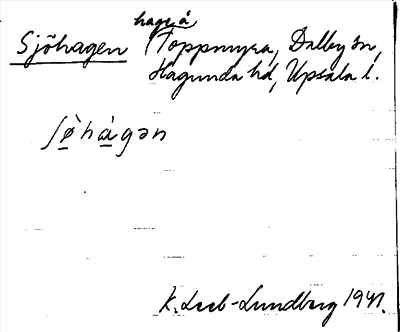 hage å
Sjöhagen Toppmyra, Dalby sn,
Hagunda hd, Upsala l.
ʃø̀hàgən
K. Leeb-Lundberg 1941.